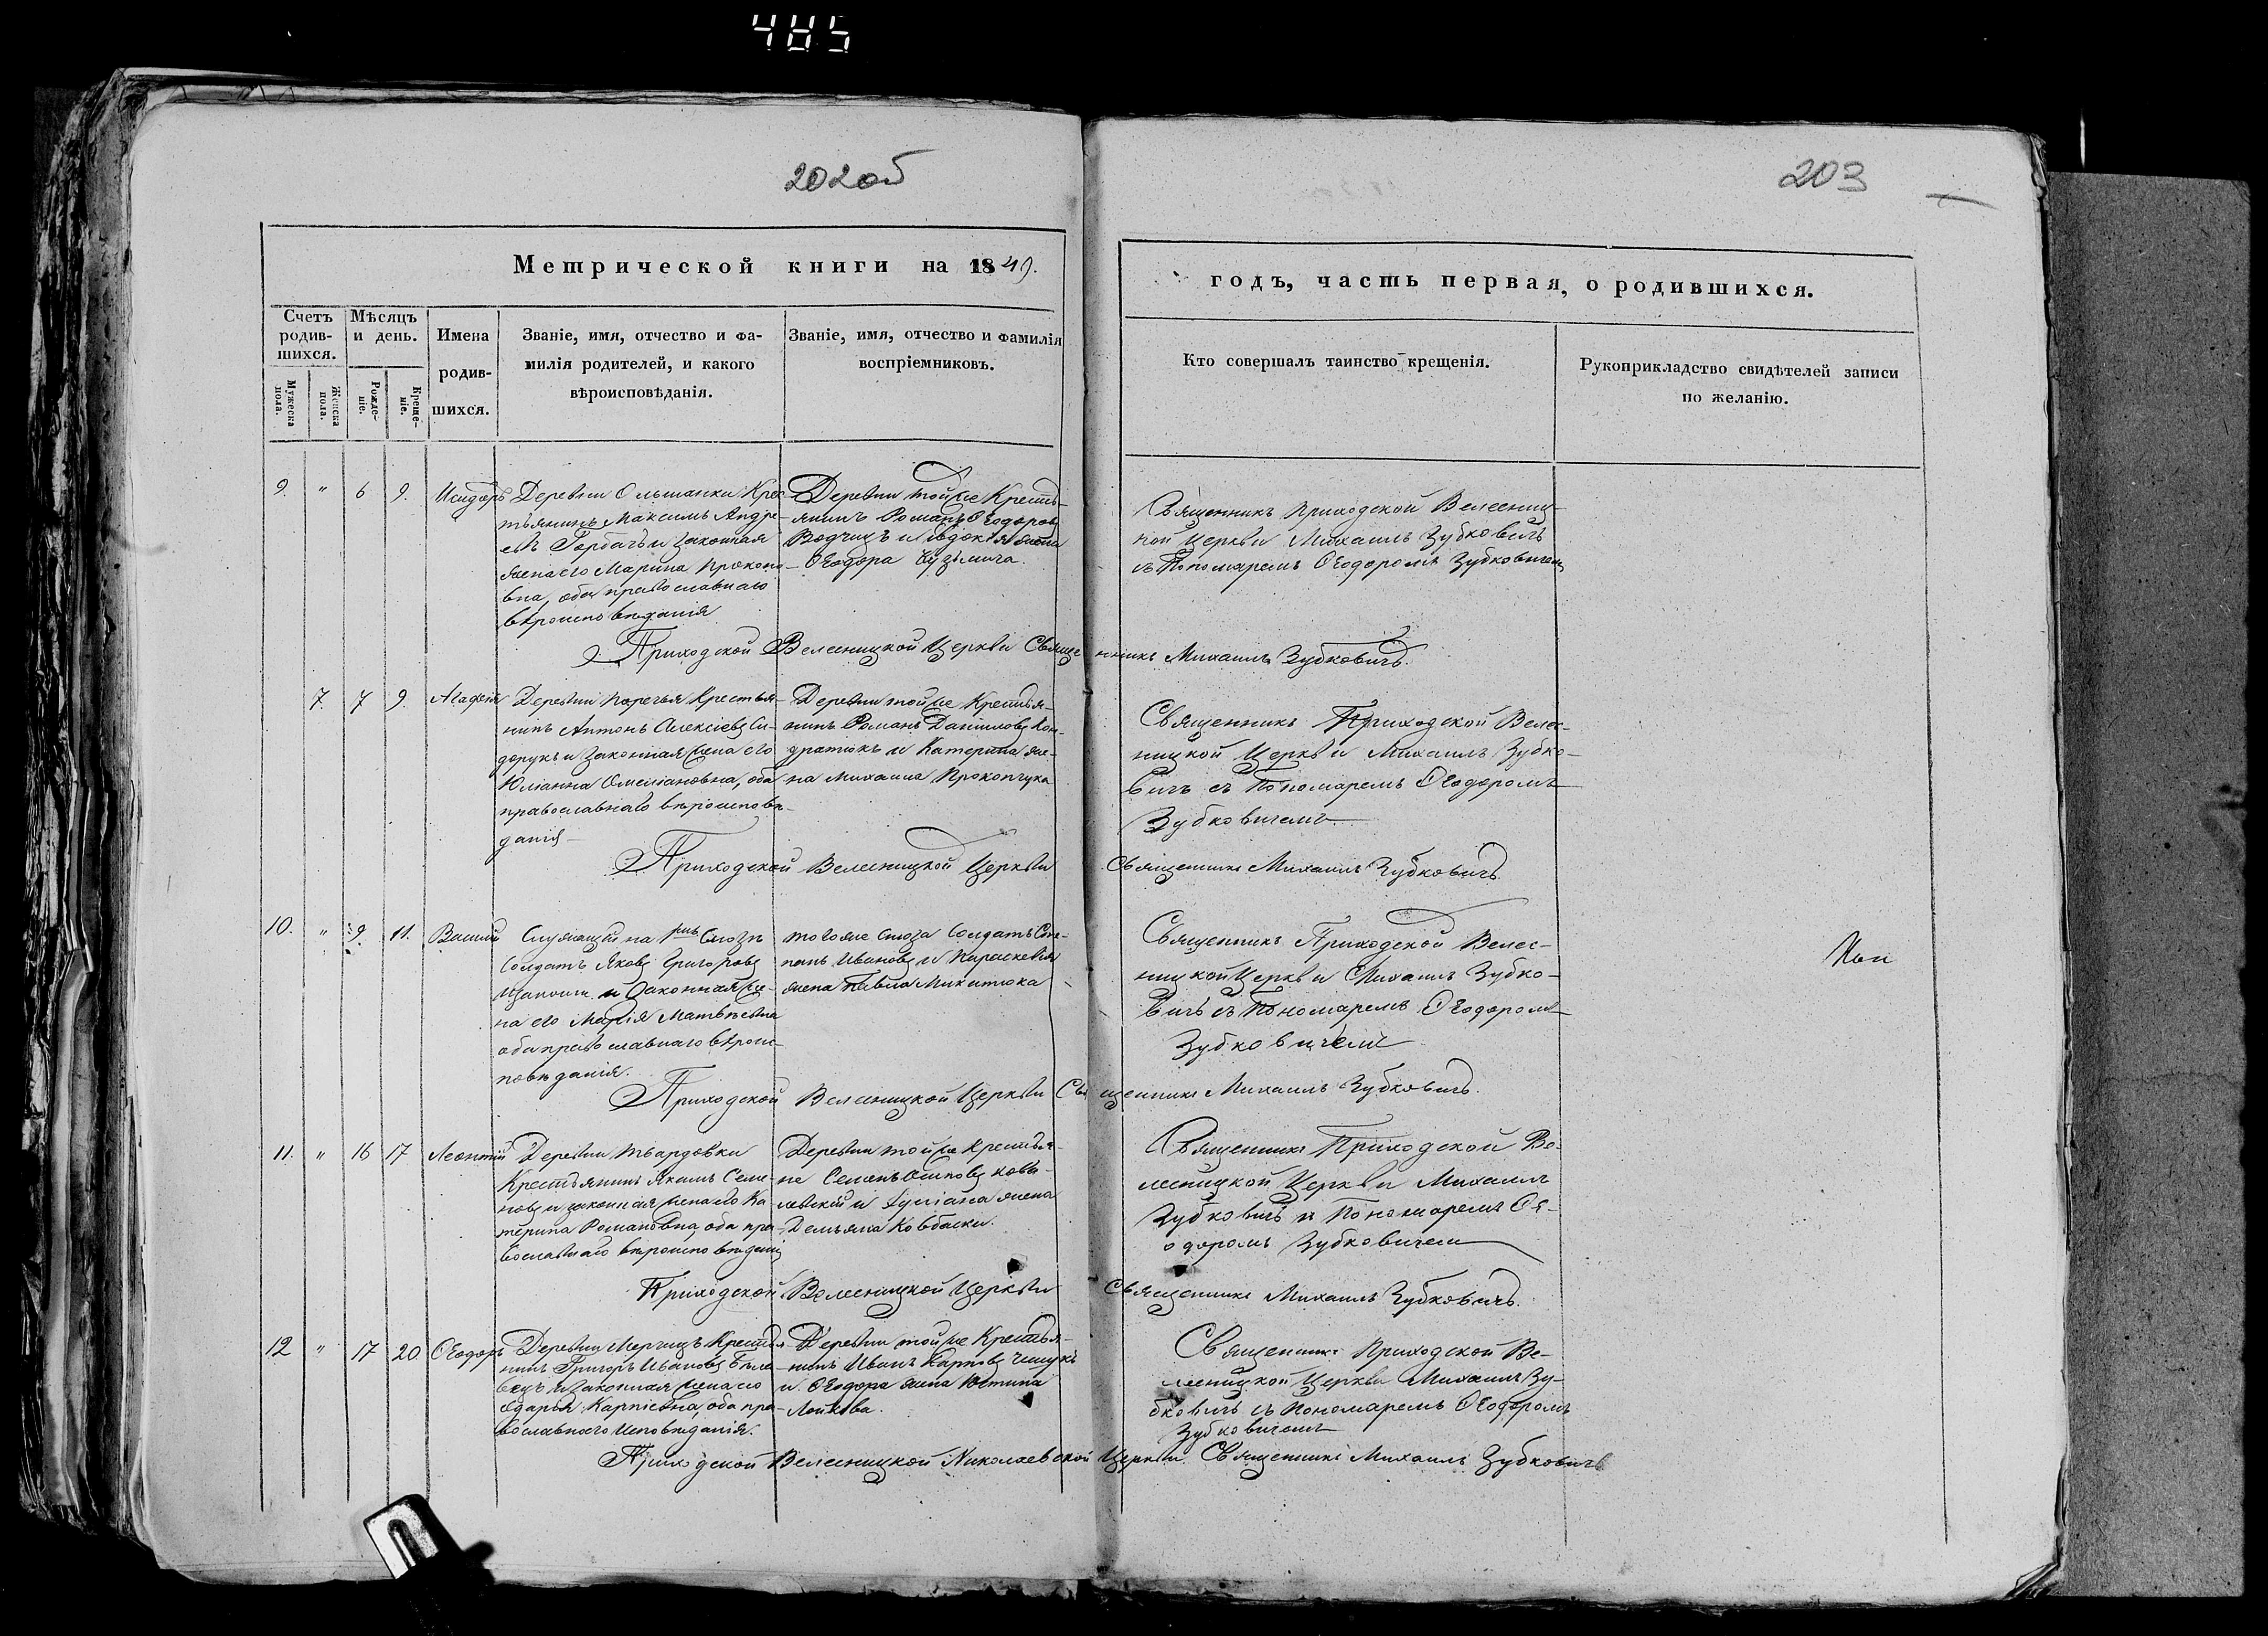 485
202об
203
Метрической книги на 1849.
годъ, часть первая, о родившихся.
Счетъ родив-шихся.
Мужеска пола.
Женска пола.
Мѣсяцъ и день.
Рожде-ніе.
Креще-ніе.
Имена родив-шихся.
Званіе, имя, отчество и фа-
милія родителей, и какого
вѣроисповѣданія.
Званіе, имя, отчество и фамилія
воспріемниковъ.
Кто совершалъ таинство крещенія.
Рукоприкладство свидѣтелей записи
по желанію.
9. " 6 9. Исидоръ
Деревни Ольшанки Крес-
тьянинъ Максимъ Андре-
евъ Горбачъ и законная
жена его Марина Прокопо-
вна, оба православнаго
вѣроисповѣданія
Деревни той же Кресть-
янинъ Романъ Ѳеодоровъ
Водчицъ и Евдокія жена
Ѳеодора Кузьмича.
Священникъ Приходской Велесниц-
кой Церкви Михаилъ Зубковичъ
съ Пономаремъ Ѳеодоромъ Зубковичемъ
Приходской Велесницкой Церкви Священникъ Михаилъ Зубковичъ.
7. 7 9. Агафія
Деревни Поречья Крестья-
нинъ Антонъ Алексіевъ Си-
дорукъ и законная жена его
Юліанна Омеліановна, оба
православнаго вѣроисповѣ-
данія
Деревни той же Крестья-
нинъ Романъ Даниловъ Кон-
дратюкъ и Катерина же-
на Михаила Прокопчука
Священникъ Приходской Велес-
ницкой Церкви Михаилъ Зубко-
вичъ съ Пономаремъ Ѳеодоромъ
Зубковичемъ
Приходской Велесницкой Церкви Священникъ Михаилъ Зубковичъ
10. " 9. 11. Василій
Служащій на Шлюзѣ
Солдатъ Яковъ Григоровъ
и законная же-
на его Марія Матвѣевна
оба православнаго вѣрои-
повѣданія.
того же шлюза Солдатъ Сте-
панъ Ивановъ и Параскевія
жена Павла Микитюка
Священникъ Приходской Велес-
ницкой Церкви Михаилъ Зубко-
вичъ съ Пономаремъ Ѳеодоромъ
Зубковичемъ
Приходской Велесницкой Церкви Священникъ Михаилъ Зубковичъ.
11. " 16 17 Леонтій
Деревни Твардовки
Крестьянинъ Якимъ Семе-
новъ и законная жена его Ка-
терина Романовна, оба пра-
вославнаго вѣроисповѣданія
Деревни той же Крестья-
не Семенъ Осиповъ Кова-
левскій и Іуліана жена
Демьяна Ковбаски.
Священникъ Приходской Ве-
лесницкой Церкви Михаилъ
Зубковичъ и Пономаремъ Ѳе-
одоромъ Зубковичемъ
Приходской Велесницкой Церкви Священникъ Михаилъ Зубковичъ.
12 " 17 20. Ѳеодоръ
Деревни Мерчицъ Крестья-
нинъ Григоръ Ивановъ
и законная жена его
Дарья Карпіевна, оба пра-
вославнаго исповѣданія.
Деревни той же Крестья-
нинъ Иванъ Карповъ
и Ѳеодора жена Юстина
Лойкова.
Священникъ Приходской Ве-
лесницкой Церкви Михаилъ Зу-
бковичъ съ Пономаремъ Ѳеодоромъ
Зубковичемъ
Приходской Велесницкой Николаевской Церкви Священникъ Михаилъ Зубковичъ